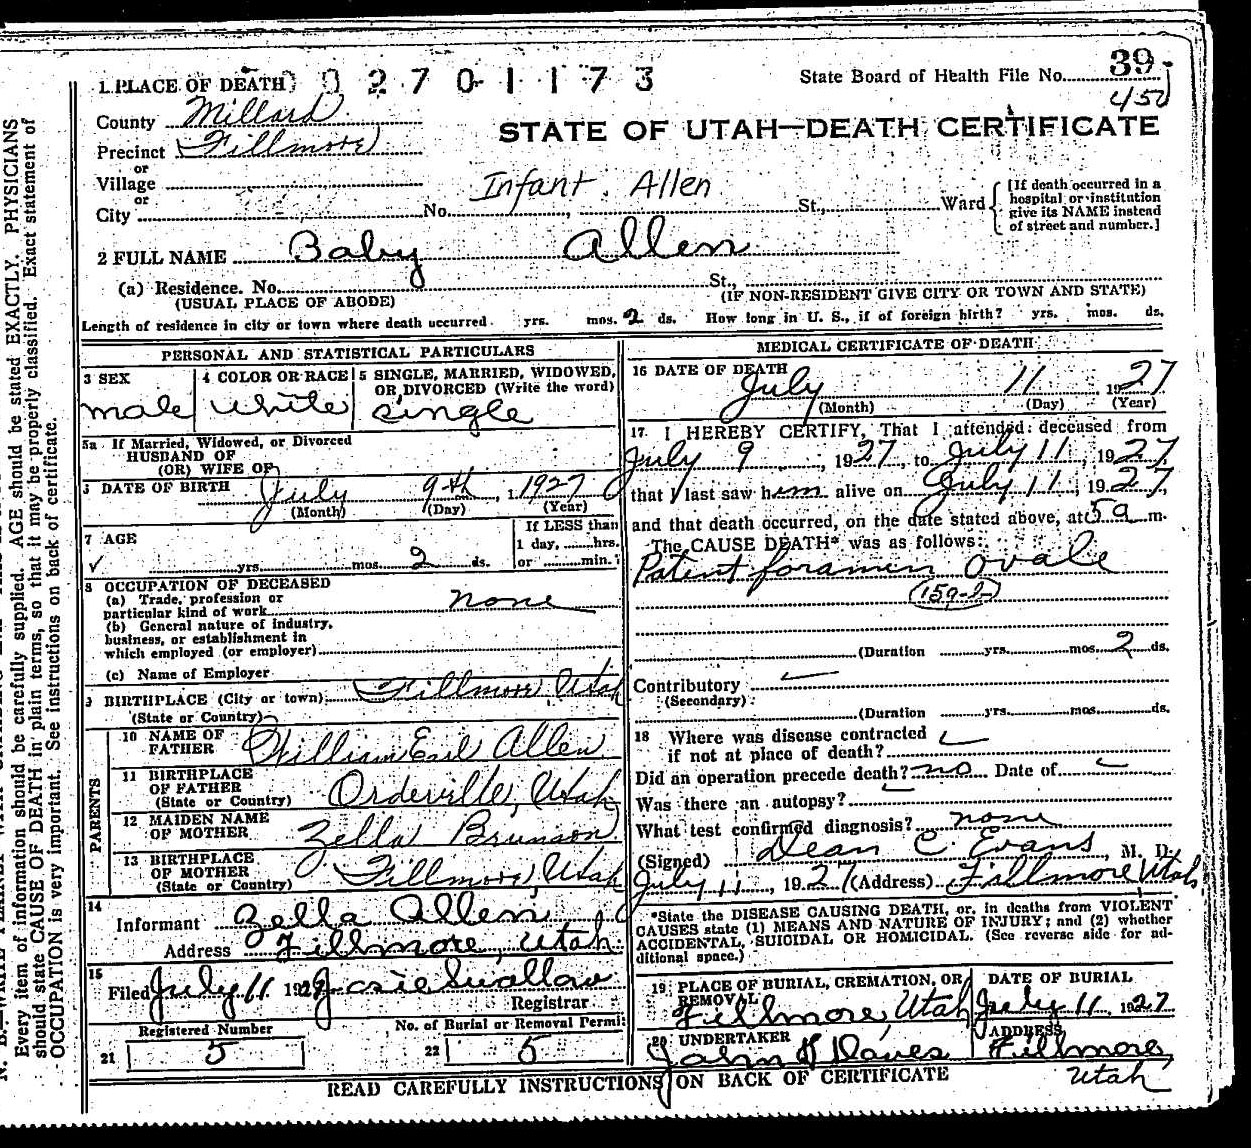 1. PLACE OF DEATH 0 0 2 7 0 1 1 7 3
State Board of Health File No. 39
450
County Millard
STATE OF UTAH—DEATH CERTIFICATE
Precinct Fillmore
or
Village
or
City No. St., Ward
Infant. Allen
[If death occurred in a
hospital or institution
give its NAME instead
of street and number.]
2 FULL NAME Baby Allen
(a) Residence. No. St.,
(USUAL PLACE OF ABODE) (IF NON-RESIDENT GIVE CITY OR TOWN AND STATE)
Length of residence in city or town where death occurred. yrs. mos. 2 ds. How long in U. S., if of foreign birth? yrs. mos. ds.
PERSONAL AND STATISTICAL PARTICULARS
3 SEX
male
4 COLOR OR RACE
white
5 SINGLE, MARRIED, WIDOWED,
OR DIVORCED (Write the word)
single
5a If Married, Widowed, or Divorced
HUSBAND OF
(OR) WIFE OF
DATE OF BIRTH July 9th, 1927
(Month) (Day) (Year)
7 AGE
yrs. mos. 2 ds.
If LESS than
1 day, hrs.
or min.
8 OCCUPATION OF DECEASED
(a) Trade, profession or
particular kind of work none
(b) General nature of industry,
business, or establishment in
which employed (or employer)
(c) Name of Employer
9 BIRTHPLACE (City or town) Fillmore, Utah
(State or Country)
PARENTS
10 NAME OF
FATHER William Earl Allen
11 BIRTHPLACE
OF FATHER
(State or Country) Orderville, Utah
12 MAIDEN NAME
OF MOTHER Zella Brunson
13 BIRTHPLACE
OF MOTHER
(State or Country) Fillmore, Utah
14
Informant Zella Allen
Address Fillmore, Utah
15
Filed July 11 1927 Josie Swallow
Registrar
Registered Number
21 5
No. of Burial or Removal Permit
22 5
MEDICAL CERTIFICATE OF DEATH
16 DATE OF DEATH
July 11 1927
(Month) (Day) (Year)
17. I HEREBY CERTIFY, That I attended deceased from
July 9, 1927, to July 11, 1927
that I last saw him alive on July 11, 1927,
and that death occurred, on the date stated above, at 5 a m.
The CAUSE DEATH* was as follows:
Patent foramen ovale
(Duration yrs. mos. 2 ds.
Contributory
(Secondary)
(Duration yrs. mos. ds.
18 Where was disease contracted
if not at place of death?
Did an operation precede death? no Date of
Was there an autopsy?
What test confirmed diagnosis? none
(Signed) Dean C. Evans, M. D.
July 11, 1927 (Address) Fillmore Utah
*State the DISEASE CAUSING DEATH, or, in deaths from VIOLENT
CAUSES state (1) MEANS AND NATURE OF INJURY; and (2) whether
ACCIDENTAL, SUICIDAL OR HOMICIDAL. (See reverse side for ad-
ditional space.)
19 PLACE OF BURIAL, CREMATION, OR
REMOVAL
Fillmore, Utah
DATE OF BURIAL
July 11, 1927
20 UNDERTAKER
ADDRESS
Fillmore,
Utah
READ CAREFULLY INSTRUCTIONS ON BACK OF CERTIFICATE
Every item of information should be carefully supplied. AGE should be stated EXACTLY. PHYSICIANS
should state CAUSE OF DEATH in plain terms, so that it may be properly classified. Exact statement of
OCCUPATION is very important. See instructions on back of certificate.